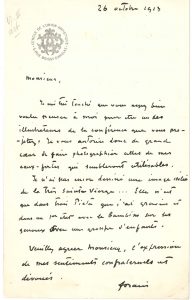 26 octobre 1913
Monsieur,
Je suis très touché que vous ayez bien
voulu penser à moi pour être un des
illustrateurs de la conférence que vous pro-
jetez. Je vous autorise donc de grand
cœur de faire photographier celles de mes
eaux-fortes qui sembleront utilisables.
Je n'ai pas encore dessiné une image isolée
de la Très Sainte Vierge... Elle n'est
que dans trois Pietà que j'ai gravées et
dans un
avec le Bambino sur ses
genoux
un groupe d'enfants.
Veuillez agréer Monsieur, l'expression
de mes sentiments confraternels et
dévoués.
forain